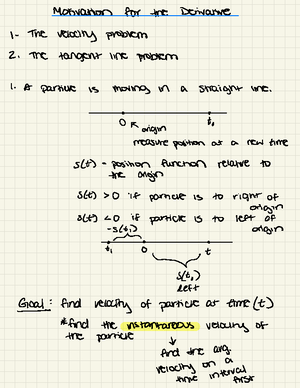 Motivation for the Derivative
1- The velocity problem
2. The tangent line problem
1. A particle is moving in a straight line.
0 t₁
origin
measure position at a new time
s(t) - position function relative to
the origin
s(t) > 0 if particle is to right of
origin
s(t) < 0 if particle is to left of
origin
-s(t₁)
t₁ 0 t
s(t₀)
left
Goal: find velocity of particle at time (t)
*find the instantaneous velocity of
the particle
find the avg
velocity on a
time interval
first